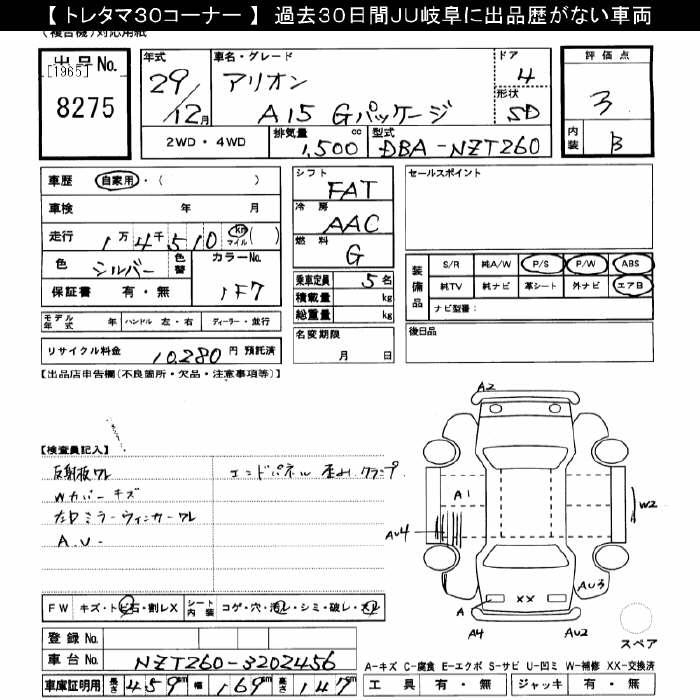 【 トレタマ30コーナー 】 過去30日間JU岐阜に出品歴がない車両
(複合機)対応用紙
出品No. [1965] 8275
年式 29/12月
車名・グレード アリオン A15 Gパッケージ
ドア 4
形状 SD
2WD・4WD
排気量 1,500 cc
型式 DBA-NZT260
評価点 3
内装 B
車歴 自家用・( )
車検 年 月
走行 1万4千510 km マイル ( )
色 シルバー 色替 カラーNo. 1F7
保証書 有・無
モデル年式 年 ハンドル 左・右 ディーラー・並行
リサイクル料金 10,280 円 預託済
シフト FAT
冷房 AAC
燃料 G
乗車定員 5名
積載量 kg
総重量 kg
名変期限 月 日
セールスポイント
装備品 S/R 純A/W P/S P/W ABS
純TV 純ナビ 革シート 外ナビ エアB
ナビ型番:
後日品
【出品店申告欄(不良個所・欠品・注意事項等)】
【検査員記入】
反射板ワレ
Wカバーキズ
ミラーウィンカーワレ
A.U-
エンドパネル 歪み.クランプ
A2
A1
AU4
W2
AU3
A
XX
A4
AU2
スペア
FW キズ・トビ石・割レX シート内装 コゲ・穴・汚レ・シミ・破レ・スレ
登録No.
車台No. NZT260-3202456
車庫証明用 長さ 459cm 幅 169cm 高さ 147cm
A-キズ C-腐食 E-エクボ S-サビ U-凹ミ W-補修 XX-交換済
工具 有・無 ジャッキ 有・無